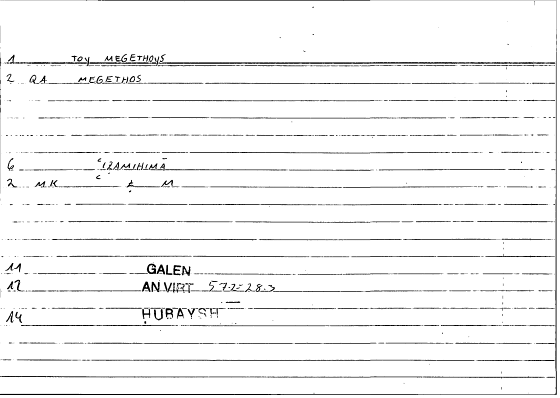 1 TOY MEGETHOYS
2 QA MEGETHOS
6 ʿIẒAMIHIMĀ
2 MK ʿẒM
11 GALEN
12 AN VIRT 572-28.3
14 ḤUBAYSH